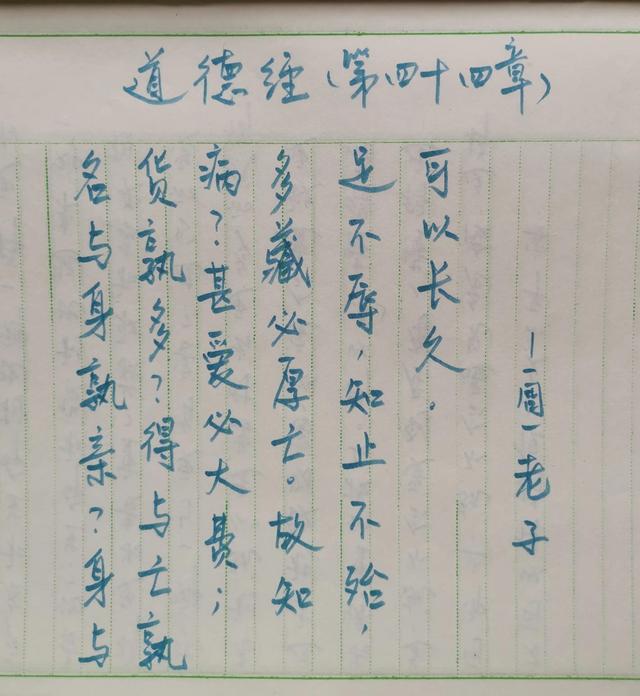 道德经（第四十四章）
名与身孰亲？身与
货孰多？得与亡孰
病？甚爱必大费；
多藏必厚亡。故知
足不辱，知止不殆，
可以长久。
—［周］老子